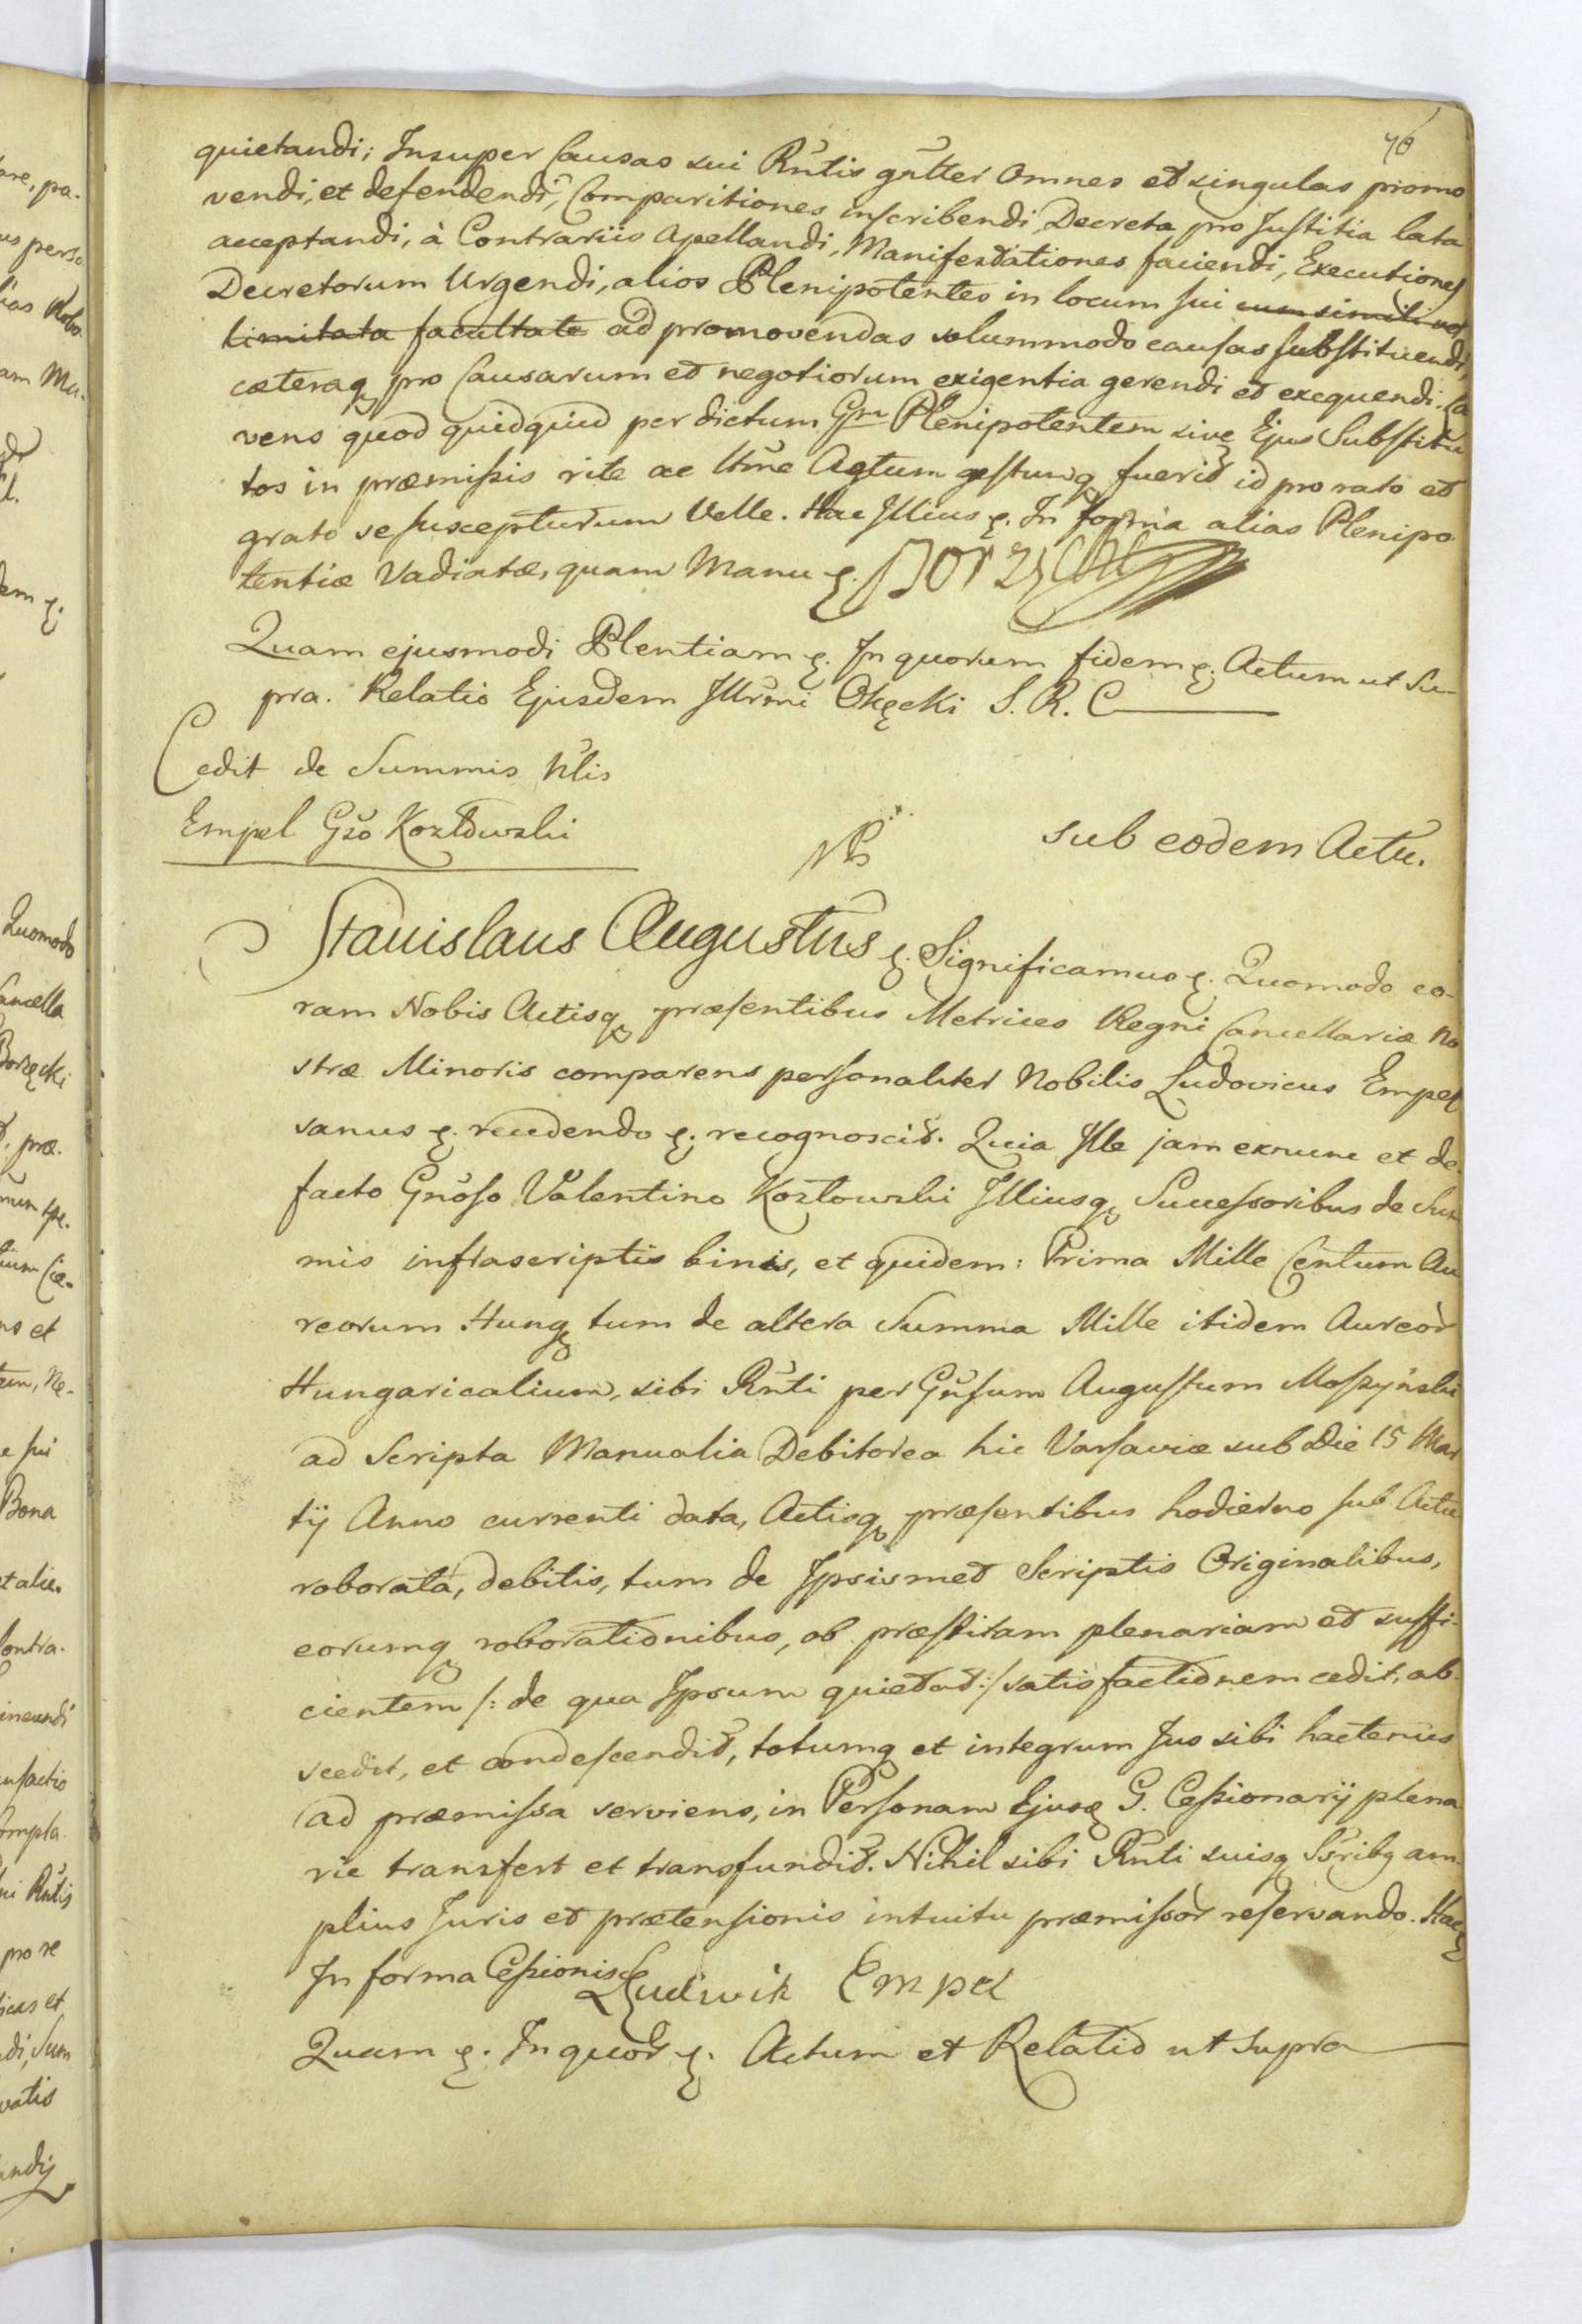 76
quietandi; Insuper Causas sui Rñtis gñlter Omnes et singulas promo
vendi, et defendendi, Comparitiones inscribendi, Decreta pro Justitia lata
acceptandi, à Contrariis Apellandi, Manifestationes faciendi, Executiones
Decretorum Urgendi, alios Plenipotentes in locum sui cum simili vel
limitata facultate ad promovendas solummodo causas substituendi,
cæteraq pro Causarum et negotiorum exigentia gerendi et exequendi. Ca
vens quod quidquid per dictum Gm Plenipotentem sive Ejus Substitu
tos in præmissis rite ac ltme Actum gestumq fuerit id pro rato et
grato se suscepturum Velle. Hac Illius &. In forma alias Plenipo
tentiæ Vadiatæ, quam Manu &.
Quam ejusmodi Plentiam &. In quorum fidem &. Actum ut Su-
pra. Relatio Ejusdem Illrmi Okęcki S. R. C
Cedit de Summis Nlis
Empel Gso Kozłowski
sub eodem Actu.
Stanislaus Augustus &. Significamus &. Quomodo co-
ram Nobis Actisq præsentibus Metrices Regni Cancellariæ No
stræ Minoris comparens personaliter Nobilis Ludovicus Empel
sanus &. recedendo &; recognoscit. Quia Ille jam exnunc et de
facto Gnoso Valentino Kozłowski Illiusq Successoribus de Sum
mis infrascriptis binis, et quidem: Prima Mille Centum Au
reorum Hung tum de altera Summa Mille itidem Aureor
Hungaricalium, sibi Rñti per Gñsum Augustum Moszyński
ad Scripta Manualia Debitorea hic Varsaviæ sub Die 15 Mar
tij Anno currenti data, Actisq præsentibus hodierno sub Actu
roborata, debitis, tum de Ipsismet Scriptis Originalibus,
eorumq roborationibus, ob præstitam plenariam et suffi-
cientem /: de qua Ipsum quietat :/ satisfactionem cedit, ab
scedit, et condescendit, totumq et integrum Jus sibi hactenus
ad præmissa serviens, in Personam Ejusd G. Cessionarij plena
rie transfert et transfundit. Nihil sibi Rñti suisq Ssribq am
plius Juris et prætensionis intuitu præmissor reservando. Hac &
In forma Cessionis &
Ludwik Empel
Quam &. In quor &. Actum et Relatio ut supra